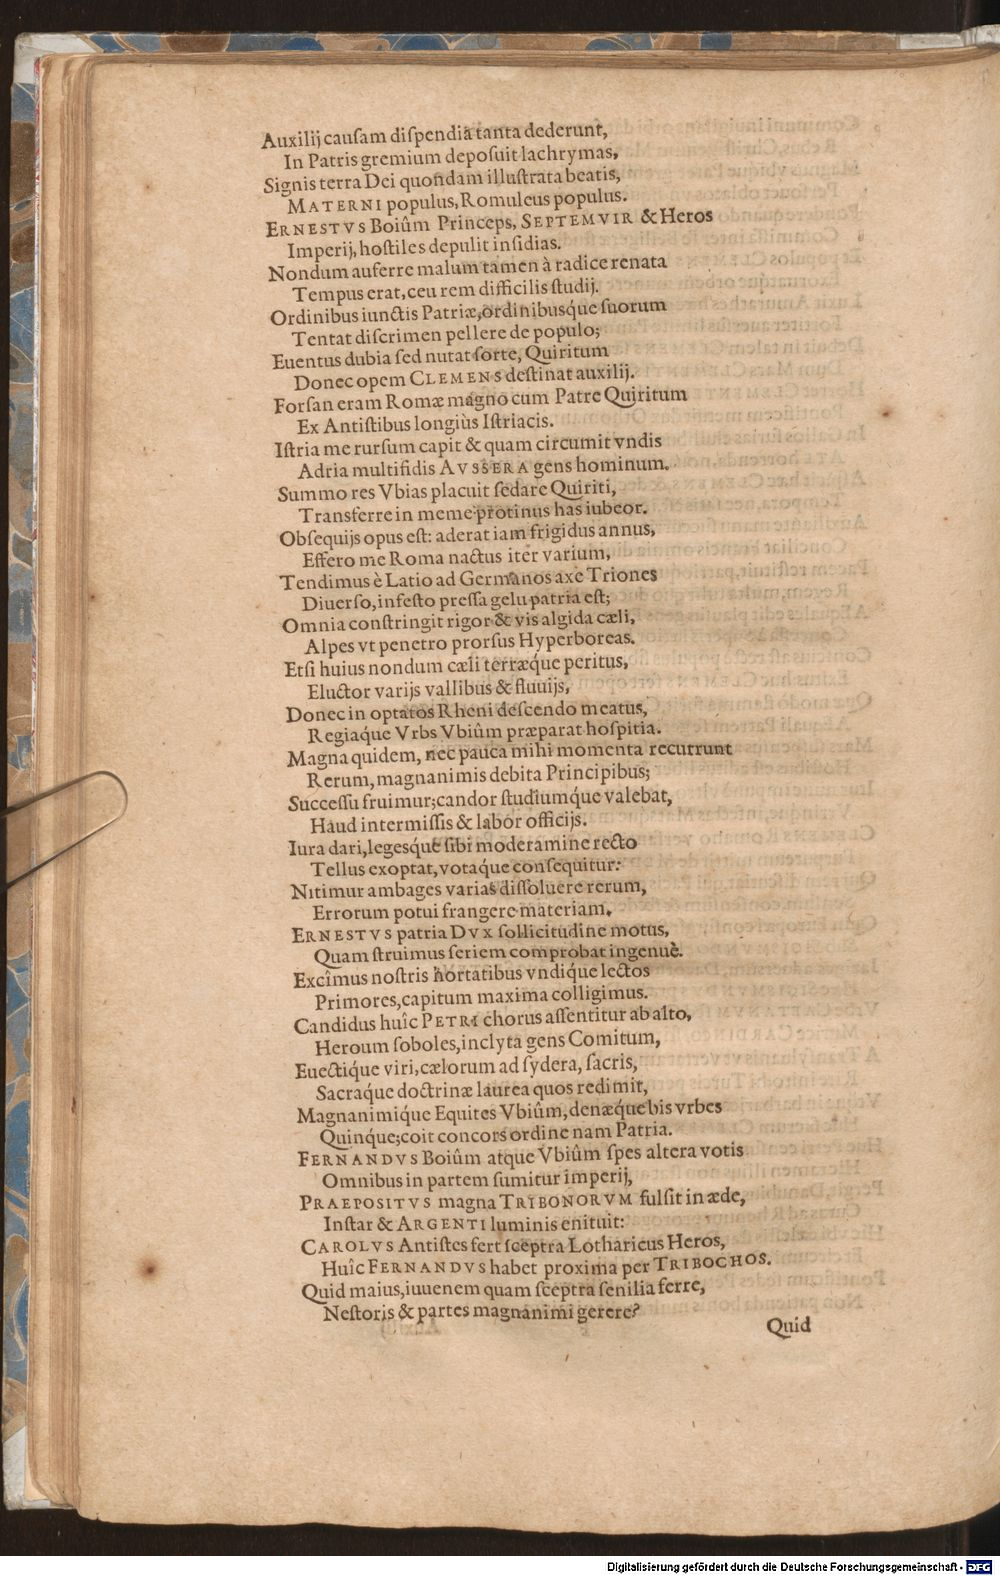 Auxilij causam dispendia tanta dederunt,
In Patris gremium deposuit lachrymas,
Signis terra Dei quondam illustrata beatis,
MATERNI populus, Romuleus populus.
ERNESTVS Boiûm Princeps, SEPTEMVIR & Heros
Imperij, hostiles depulit insidias.
Nondum auferre malum tamen à radice renata
Tempus erat, ceu rem difficilis studij.
Ordinibus iunctis Patriæ, ordinibusque suorum
Tentat discrimen pellere de populo;
Euentus dubia sed nutat sorte, Quiritum
Donec opem CLEMENS destinat auxilij.
Forsan eram Romæ magno cum Patre Quiritum
Ex Antistibus longiùs Istriacis.
Istria me rursum capit & quam circumit vndis
Adria multifidis AVSSERA gens hominum.
Summo res Vbias placuit sedare Quiriti,
Transferre in meme protinus has iubeor.
Obsequijs opus est: aderat iam frigidus annus,
Effero me Roma nactus iter varium,
Tendimus è Latio ad Germanos axe Triones
Diuerso, infesto pressa gelu patria est;
Omnia constringit rigor & vis algida cæli,
Alpes vt penetro prorsus Hyperboreas.
Etsi huius nondum cæli terræque peritus,
Eluctor varijs vallibus & fluuijs,
Donec in optatos Rheni descendo meatus,
Regiaque Vrbs Vbiûm præparat hospitia.
Magna quidem, nec pauca mihi momenta recurrunt
Rerum, magnanimis debita Principibus;
Successu fruimur; candor studiumq́ue valebat,
Haud intermissis & labor officijs.
Iura dari, legesq́ue sibi moderamine recto
Tellus exoptat, votaq́ue consequitur:
Nitimur ambages varias dissoluere rerum,
Errorum potui frangere materiam.
ERNESTVS patria DVX sollicitudine motus,
Quam struimus seriem comprobat ingenuè.
Excîmus nostris hortatibus vndiq́ue lectos
Primores, capitum maxima colligimus.
Candidus huîc PETRI chorus assentitur ab alto,
Heroum soboles, inclyta gens Comitum,
Euectiq́ue viri, cælorum ad sydera, sacris,
Sacraq́ue doctrinæ laurea quos redimit,
Magnanimiq́ue Equites Vbiûm, denæq́ue bis vrbes
Quinq́ue; coit concors ordine nam Patria.
FERNANDVS Boiûm atque Vbiûm spes altera votis
Omnibus in partem sumitur imperij,
PRAEPOSITVS magna TRIBONORVM fulsit in æde,
Instar & ARGENTI luminis enituit:
CAROLVS Antistes fert sceptra Lotharicus Heros,
Huîc FERNANDVS habet proxima per TRIBOCHOS.
Quid maius, iuuenem quam sceptra senilia ferre,
Nestoris & partes magnanimi gerere?
Quid
Digitalisierung gefördert durch die Deutsche Forschungsgemeinschaft - DFG